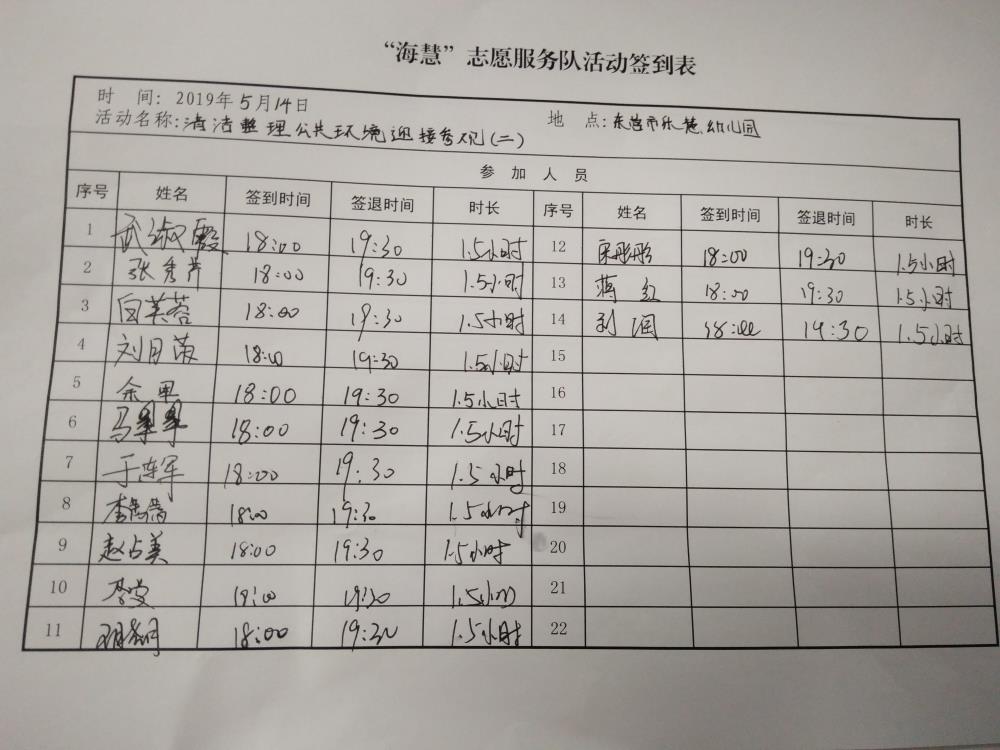 “海慧”志愿服务队活动签到表
时 间: 2019年5月14日 地 点: 东营市乐慧幼儿园
活动名称:清洁整理公共环境迎接参观(二)
参 加 人 员
序号 姓名 签到时间 签退时间 时长 序号 姓名 签到时间 签退时间 时长
1 武淑霞 18:00 19:30 1.5小时 12 宋彤彤 18:00 19:30 1.5小时
2 张秀芹 18:00 19:30 1.5小时 13 蒋红 18:00 19:30 1.5小时
3 白芙蓉 18:00 19:30 1.5小时 14 刘润 18:00 19:30 1.5小时
4 刘月茹 18:00 19:30 1.5小时 15
5 余男 18:00 19:30 1.5小时 16
6 马 18:00 19:30 1.5小时 17
7 于连军 18:00 19:30 1.5小时 18
8 李 18:00 19:30 1.5小时 19
9 赵占美 18:00 19:30 1.5小时 20
10 18:00 19:30 1.5小时 21
11 18:00 19:30 1.5小时 22